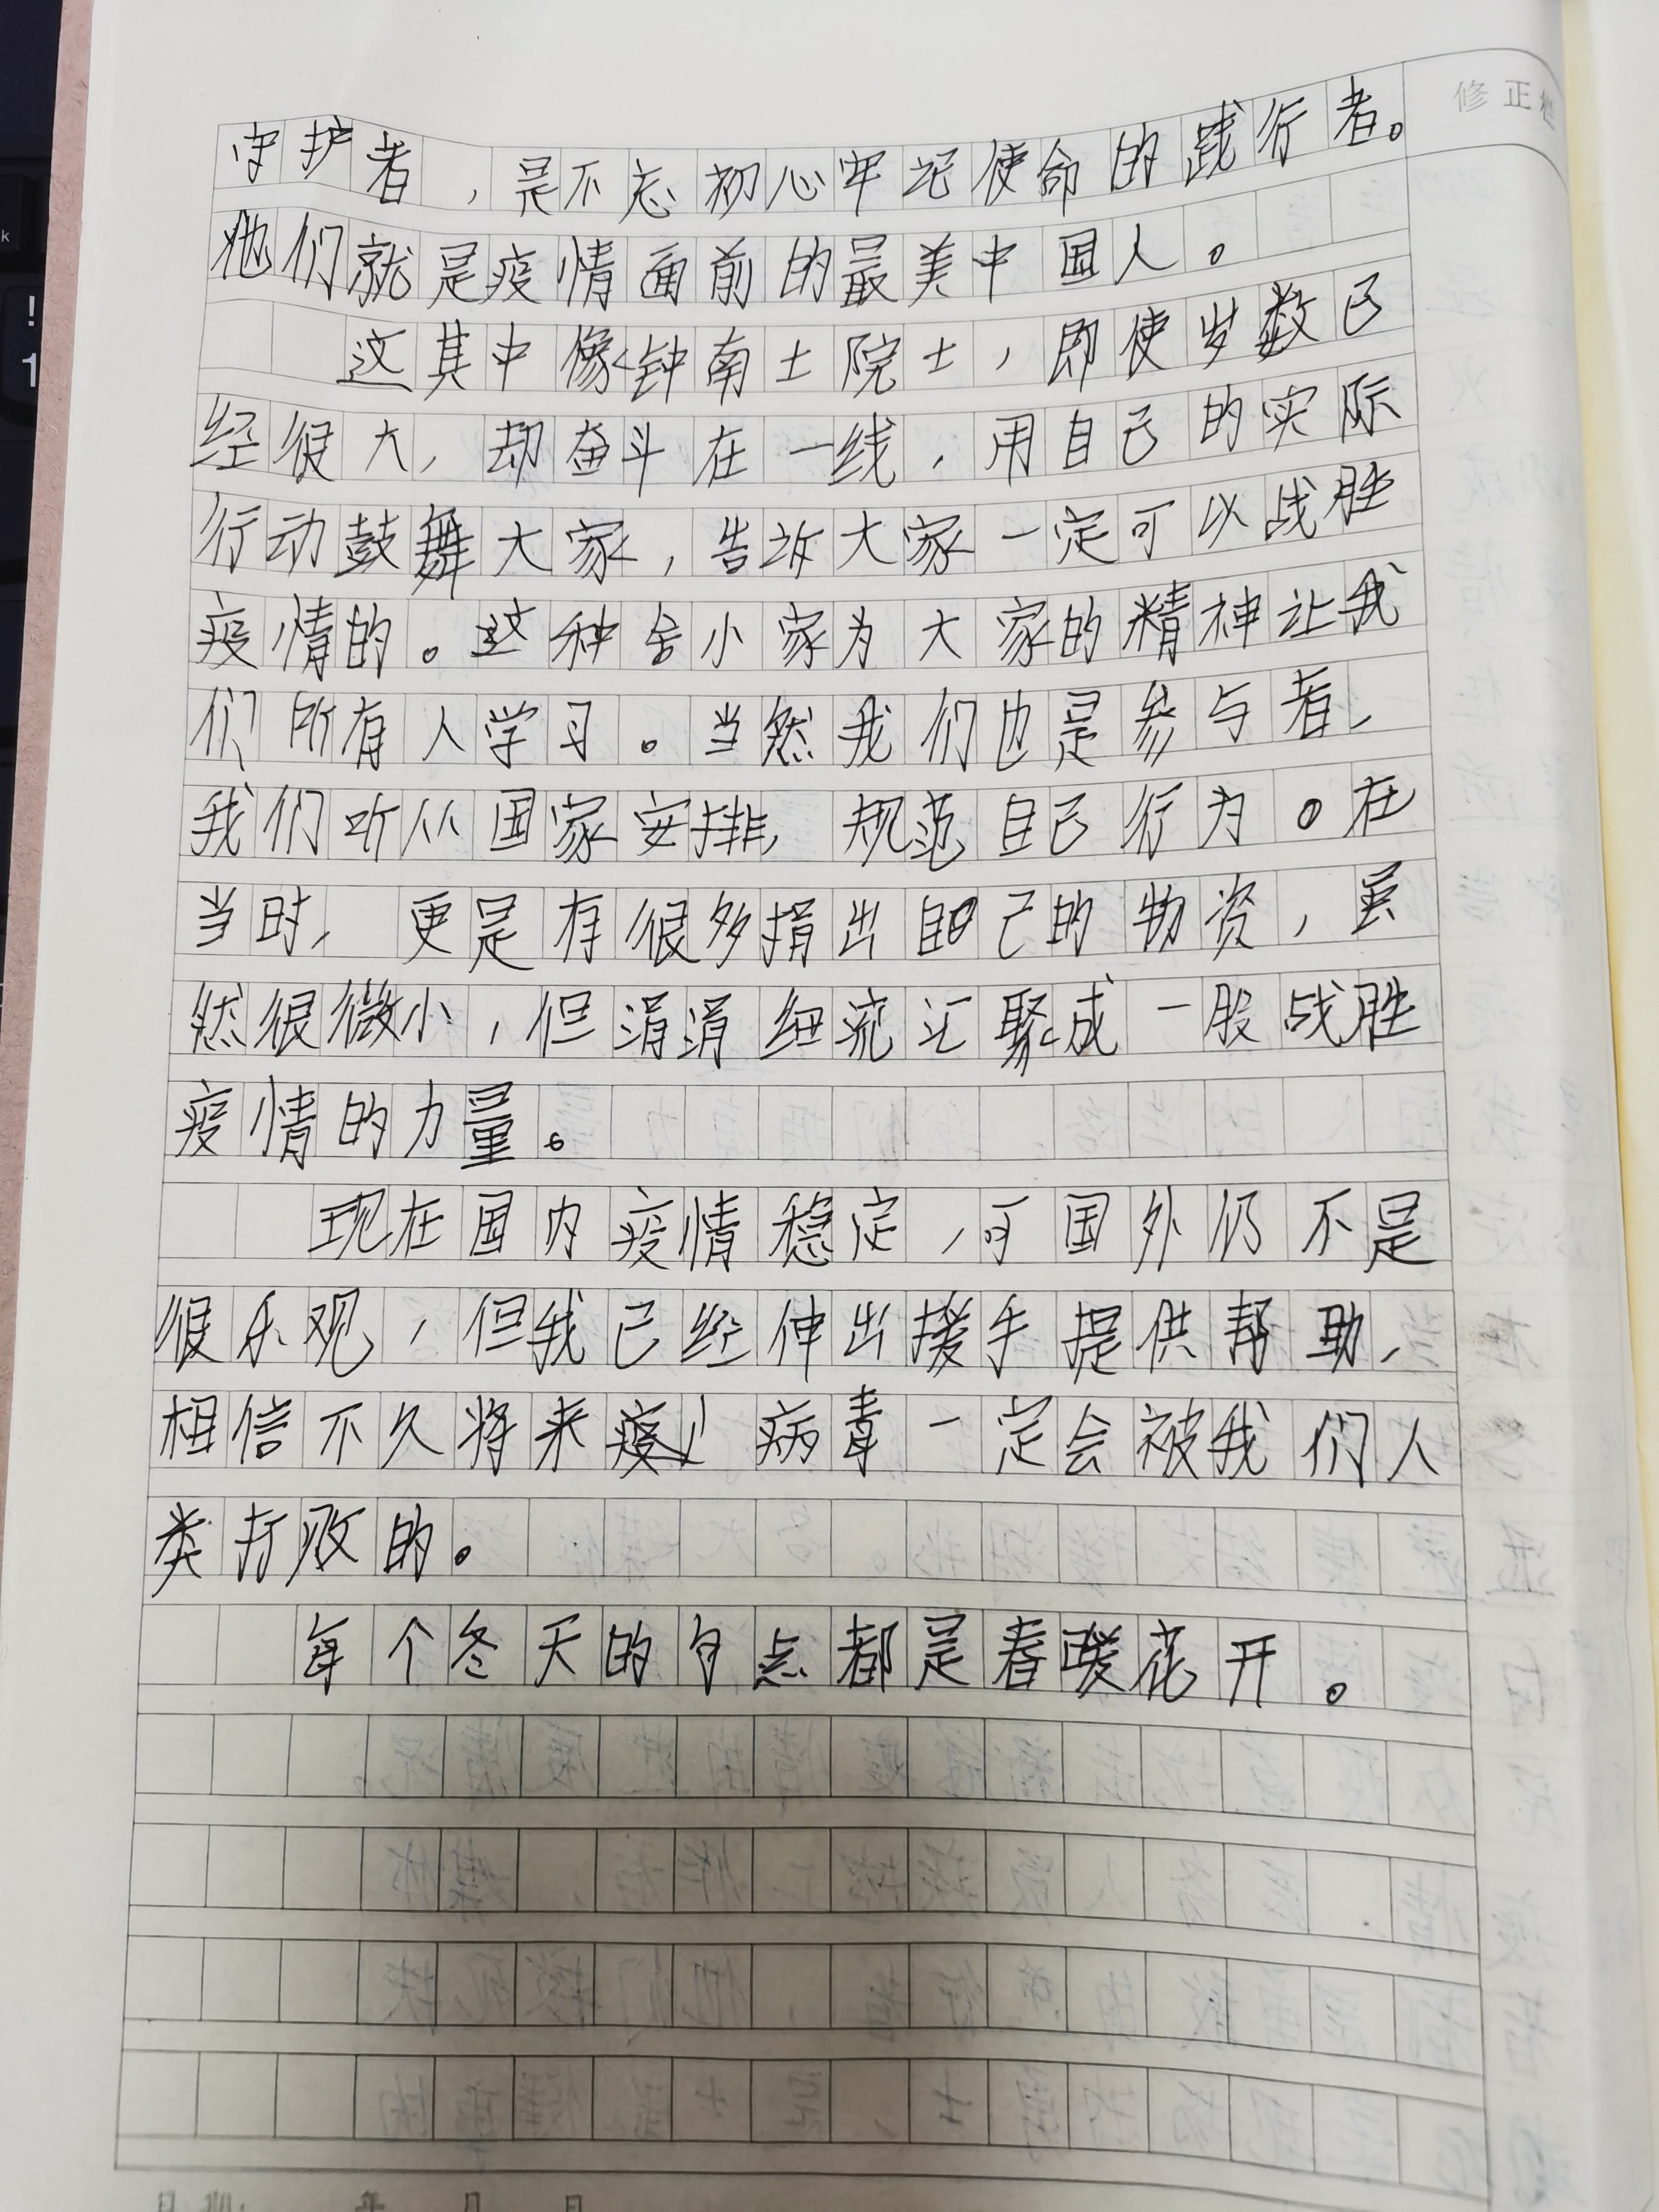 修正
守护者，是不忘初心牢记使命的践行者。
他们就是疫情面前的最美中国人。
这其中像钟南士院士，即使岁数已
经很大，却奋斗在一线，用自己的实际
行动鼓舞大家，告诉大家一定可以战胜
疫情的。这种舍小家为大家的精神让我
们所有人学习。当然我们也是参与者，
我们听从国家安排，规范自己行为。在
当时，更是有很多捐出自己的物资，虽
然很微小，但涓涓细流汇聚成一股战胜
疫情的力量。
现在国内疫情稳定，可国外仍不是
很乐观，但我已经伸出援手提供帮助，
相信不久将来疫病毒一定会被我们人
类打败的。
每个冬天的句点都是春暖花开。
年 月 日